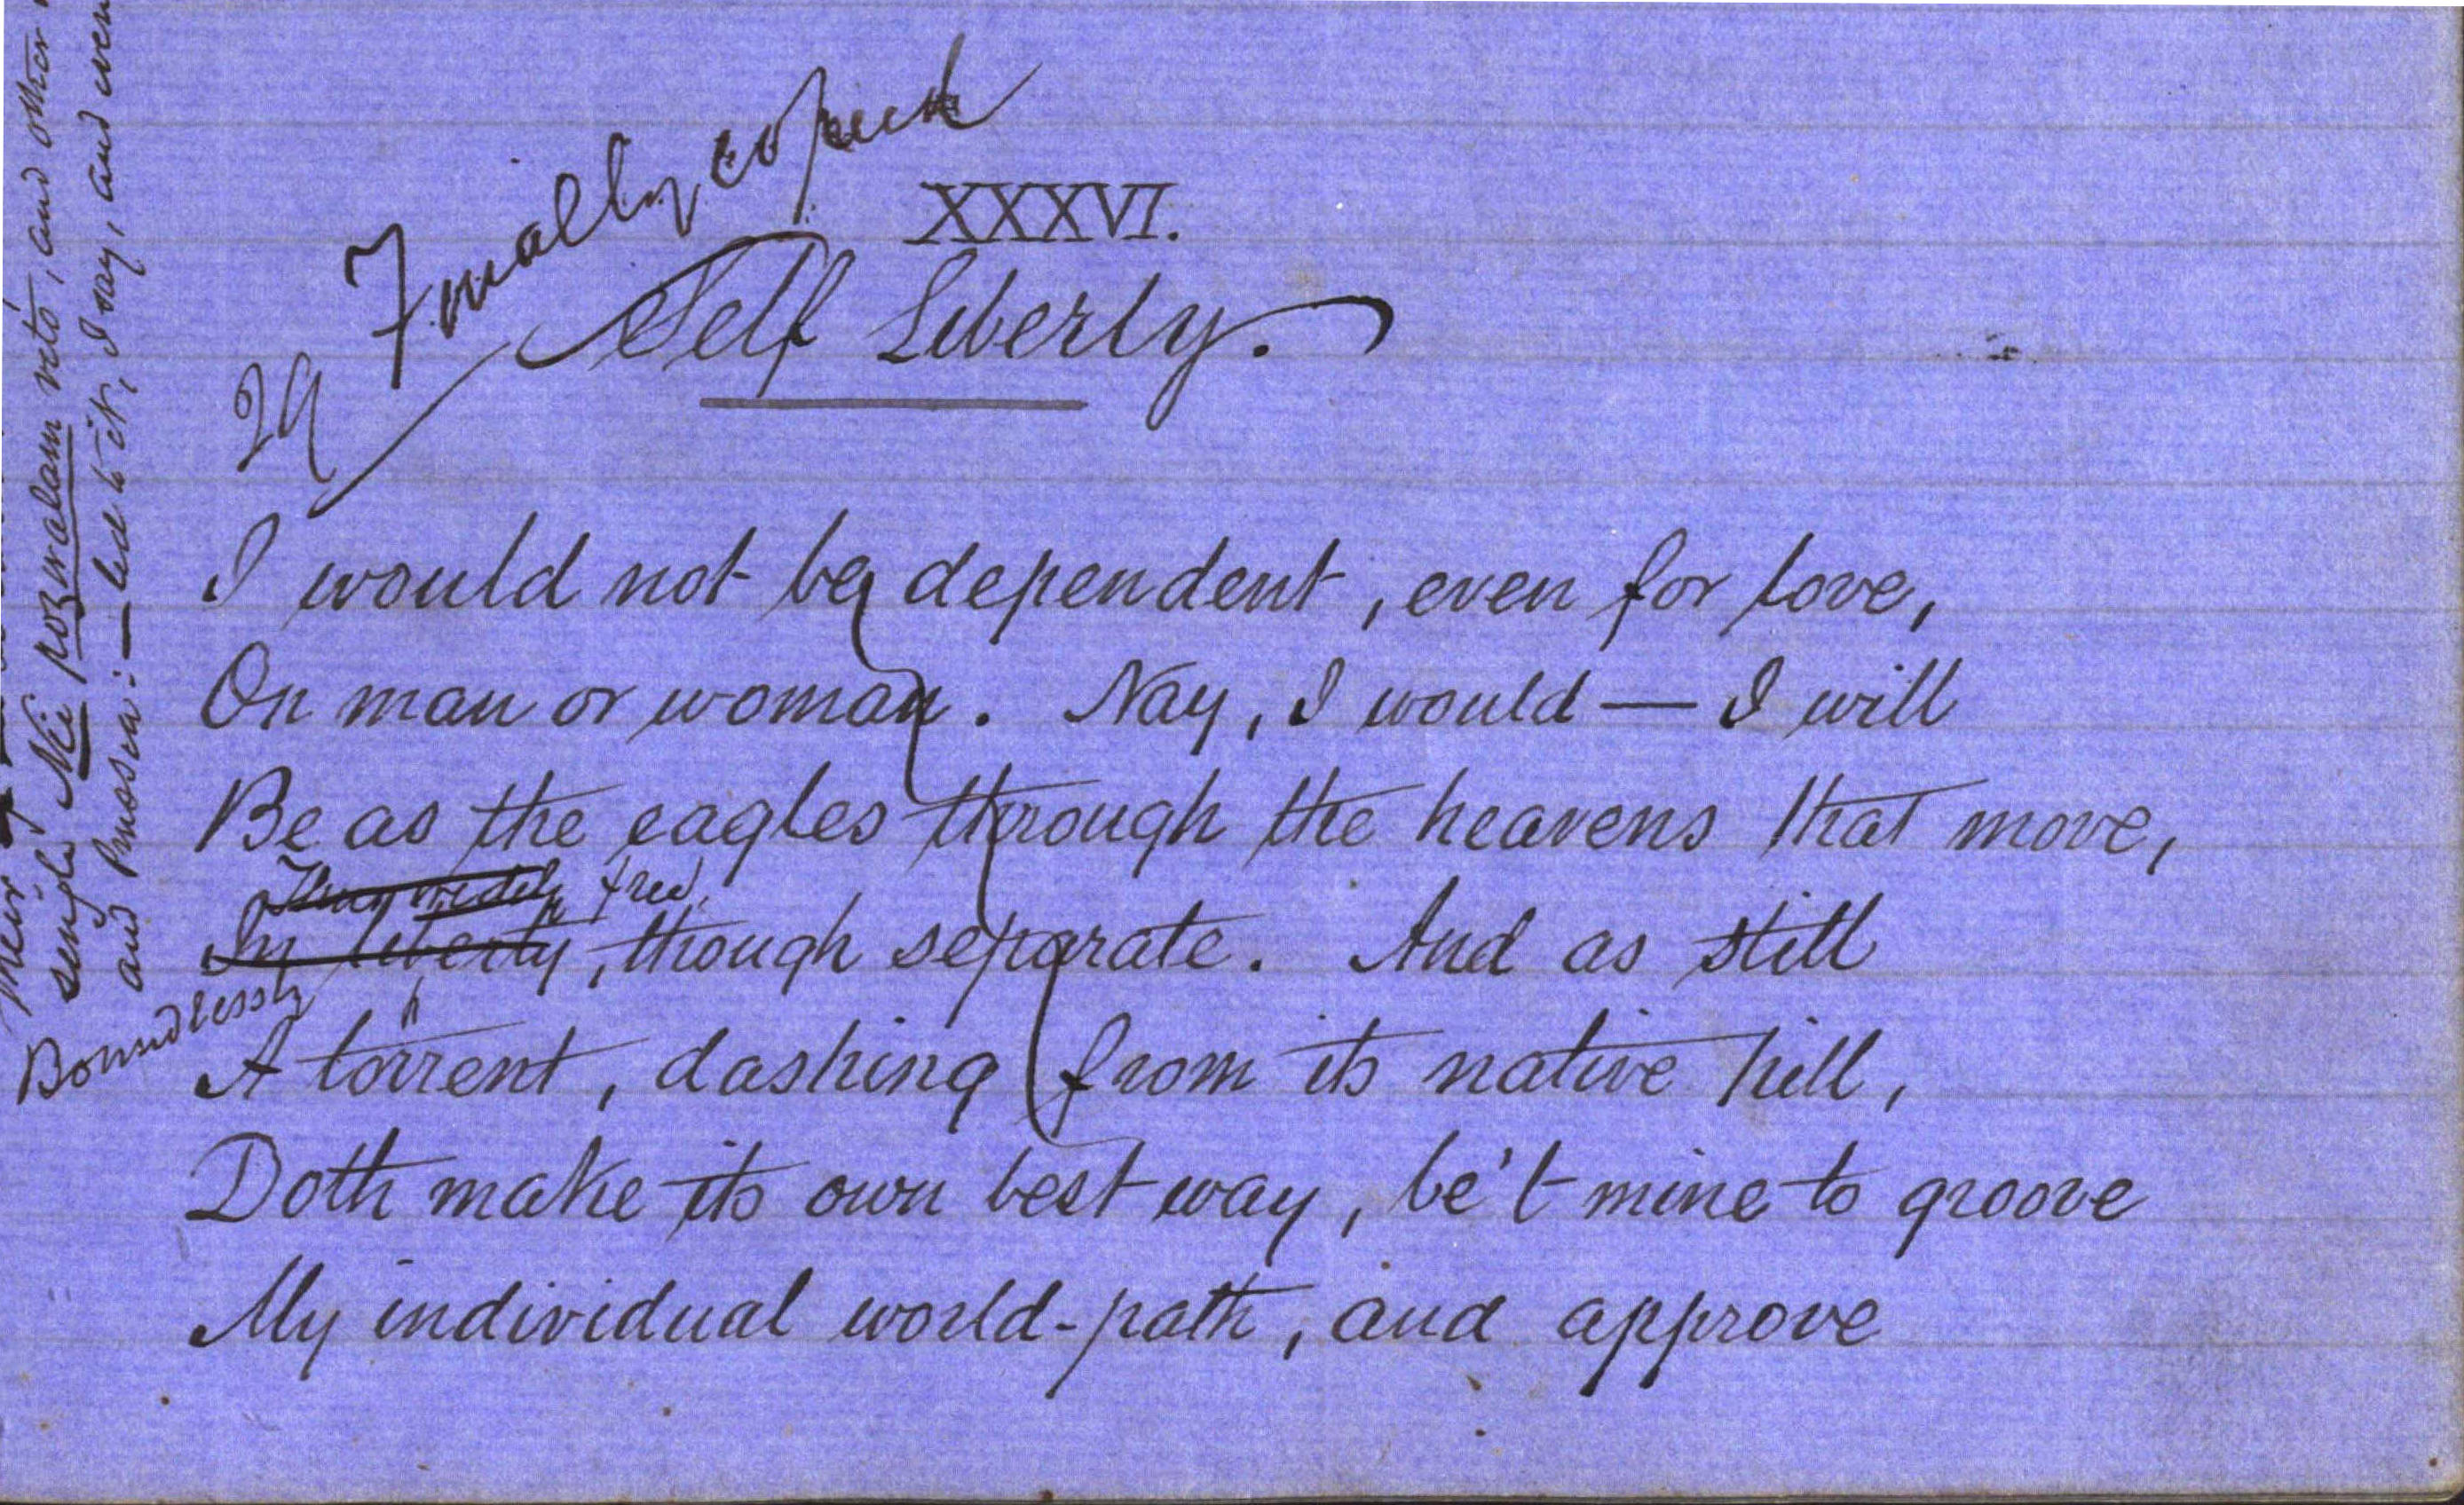 Finally copied
XXXVI.
Self Liberty.
29
I would not be dependent, even for love,
On man or woman. Nay, I would — I will
Be as the eagles through the heavens that move,
free,
In liberty, though separate. And as still
Boundlessly
A torrent, dashing from its native hill,
Doth make its own best way, be't mine to groove
My individual world-path, and approve
their
single Nie pozwalam veto, and other
and Prussia: — led to it, I say, and even